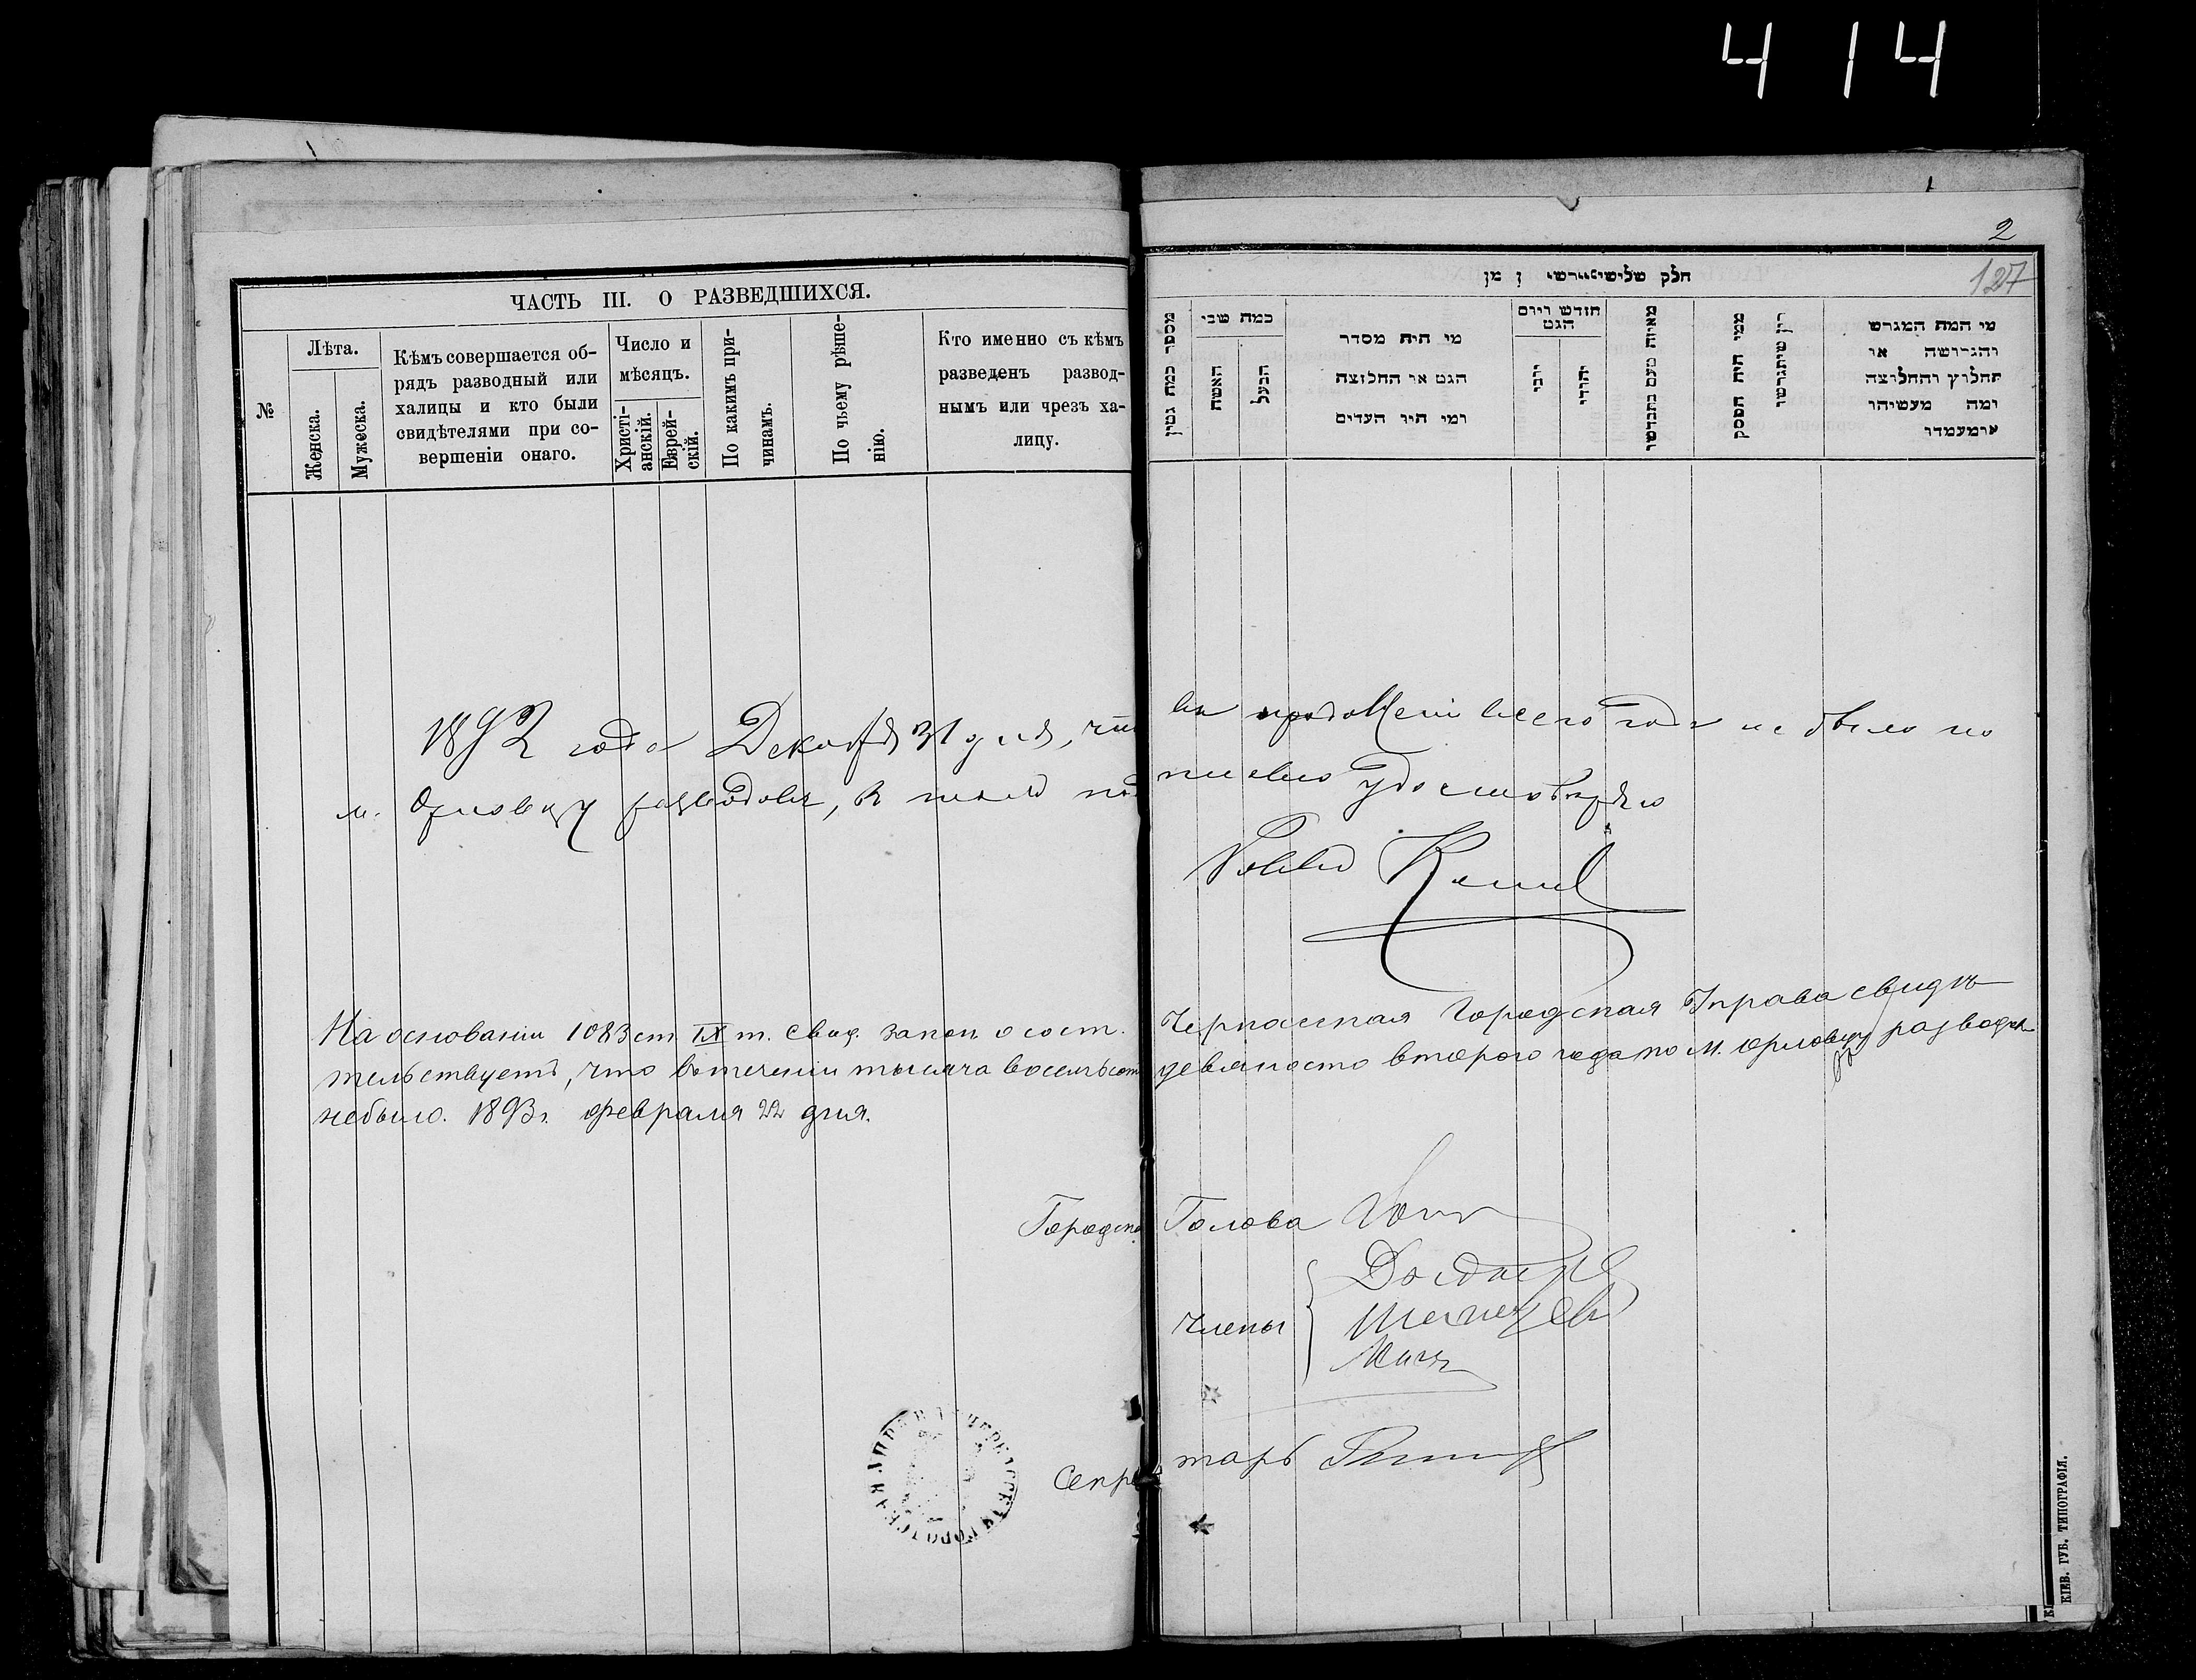 4 14
2
127
ЧАСТЬ III. О РАЗВЕДШИХСЯ.
№
Лѣта.
Женска.
Мужеска.
Кѣмъ совершается об-
рядъ разводный или
халицы и кто были
свидѣтелями при со-
вершеніи онаго.
Число и
мѣсяцъ.
Христі-
анскій.
Еврей-
скій.
По какимъ при-
чинамъ.
По чьему рѣше-
нію.
Кто именно съ кѣмъ
разведенъ развод-
нымъ или чрезъ ха-
лицу.
חלק שלישי
מספר כמה גטין
כמה שני
האשה
הבעל
מי היה מסדר
הגט או החליצה
ומי היו העדים
חודש ויום
הגט
יוני
יהודי
מאיזה טעם נתגרשו
ממי היה הפסק
דין שיתגרשו
מי המה המגרש
והגרושה או
החלוץ והחלוצה
ומה מעשיהו
ומעמדו
1892 года Декабря 31 дня, что въ продолженіи всего года не было по
м. Орловцу разводовъ, въ томъ подписью удостовѣряю
На основаніи 1083 ст. IX т. Свод. закон. о сост. Черкасская Городская Управа свидѣ-
тельствуетъ, что въ теченіи тысяча восемьсот девяносто второго года по м. Орловцу разводовъ
небыло. 1893 г. февраля 22 дня.
Городской Голова
Члены
Секретарь
ЧЕРКАССКАЯ ГОРОДСКАЯ УПРАВА
КІЕВ. ГУБ. ТИПОГРАФІЯ.